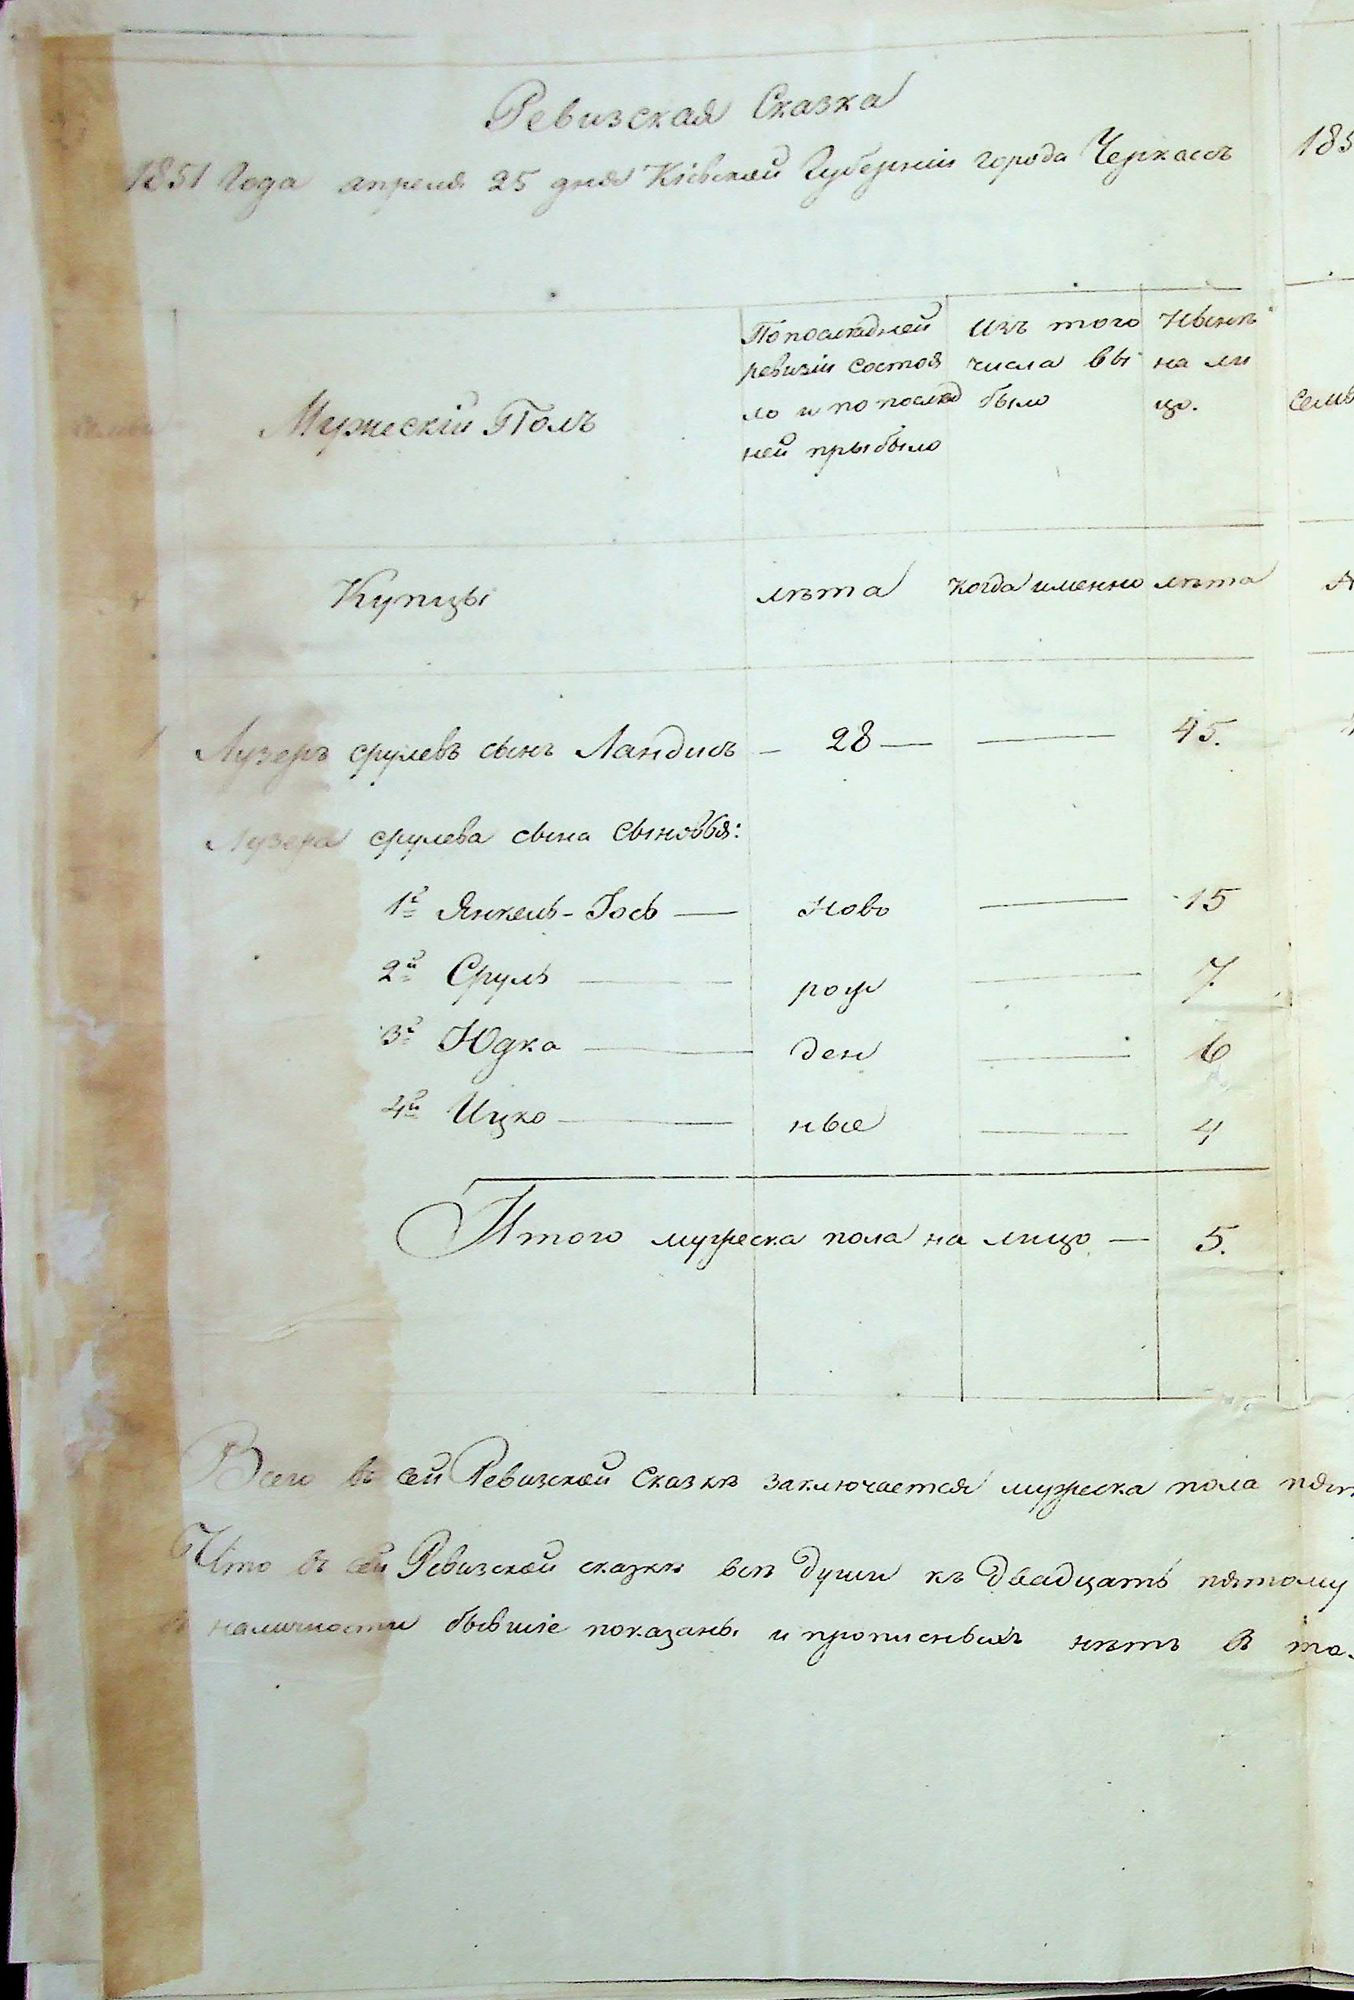 Ревизская Сказка
1851 Года апреля 25 дня Кіевской Губерніи города Черкассъ
Семьи
Мужескій Полъ
По последней ревизіи состоя ло и по послед ней прыбыло
Изъ того числа вы было
Нынѣ на ли цо.
Купцы
лѣта
когда именно
лѣта
1 Лузеръ срулевъ сынъ Ландисъ – 28 — — 45.
Лузера срулева сына сыновья:
1й Янкель-Іось — Ново — 15
2й Сруль — рож — 7.
3й Юдка — ден — 6
4й Ицко — ные — 4
Итого мужеска пола на лицо — 5.
Всего въ сей Ревизской Сказкѣ заключается мужеска пола пят
Что въ сей Ревизской сказкѣ всѣ души къ двадцать пятому
въ наличности бывшіе показаны и прописныхъ нѣтъ В то
185
Семь